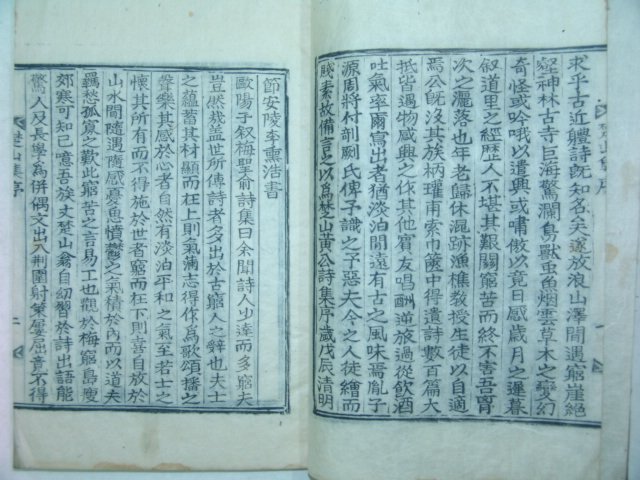 求乎古近軆詩旣知名矣遂放浪山澤間遇窮崖絶
壑神林古寺巨海驚瀾鳥獸虫魚烟雲草木之變幻
奇怪或吟哦以遣興或嘯傲以竟日感歲月之遲暮
叙道里之經歷人不堪其艱關窮苦而終不害吾胷
次之灑落也年老歸休混跡漁樵敎授生徒以自適
焉公旣沒其族柄瓘甫索巾篋中得遺詩數百篇大
抵皆遇物感興之作其他賓友唱酬逆旅過從飮酒
吐氣率爾寫出者猶淡泊閒遠有古之風味焉胤子
源周將付剞劂氏俾予識之予惡夫今之人徒繪而
賤素故備言之以爲楚山黃公詩集序歲戊辰清明
節安陵李熏浩書
歐陽子叙梅聖俞詩集曰余聞詩人少達而多窮夫
豈然哉盖世所傳詩者多出於古窮人之辭也夫士
之蘊蓄其材顯而在上則氣蒲志得作爲歌頌播之
聲樂其感於心者自然有淡泊平和之氣至若士之
懷其所有而不得施於世者窮而在下則喜自放於
山水間隨遇隨感憂魚憤鬱之氣積於內而以道夫
羈愁孤寡之歎此窮苦之言易工也觀於梅窮島瘦
郊寒可知已噫吾族丈楚山翁自幼習於詩出語能
驚人及長學爲倂偶文出入荆圍射策屢屈竟不得
楚山集序
一
楚山集序
二